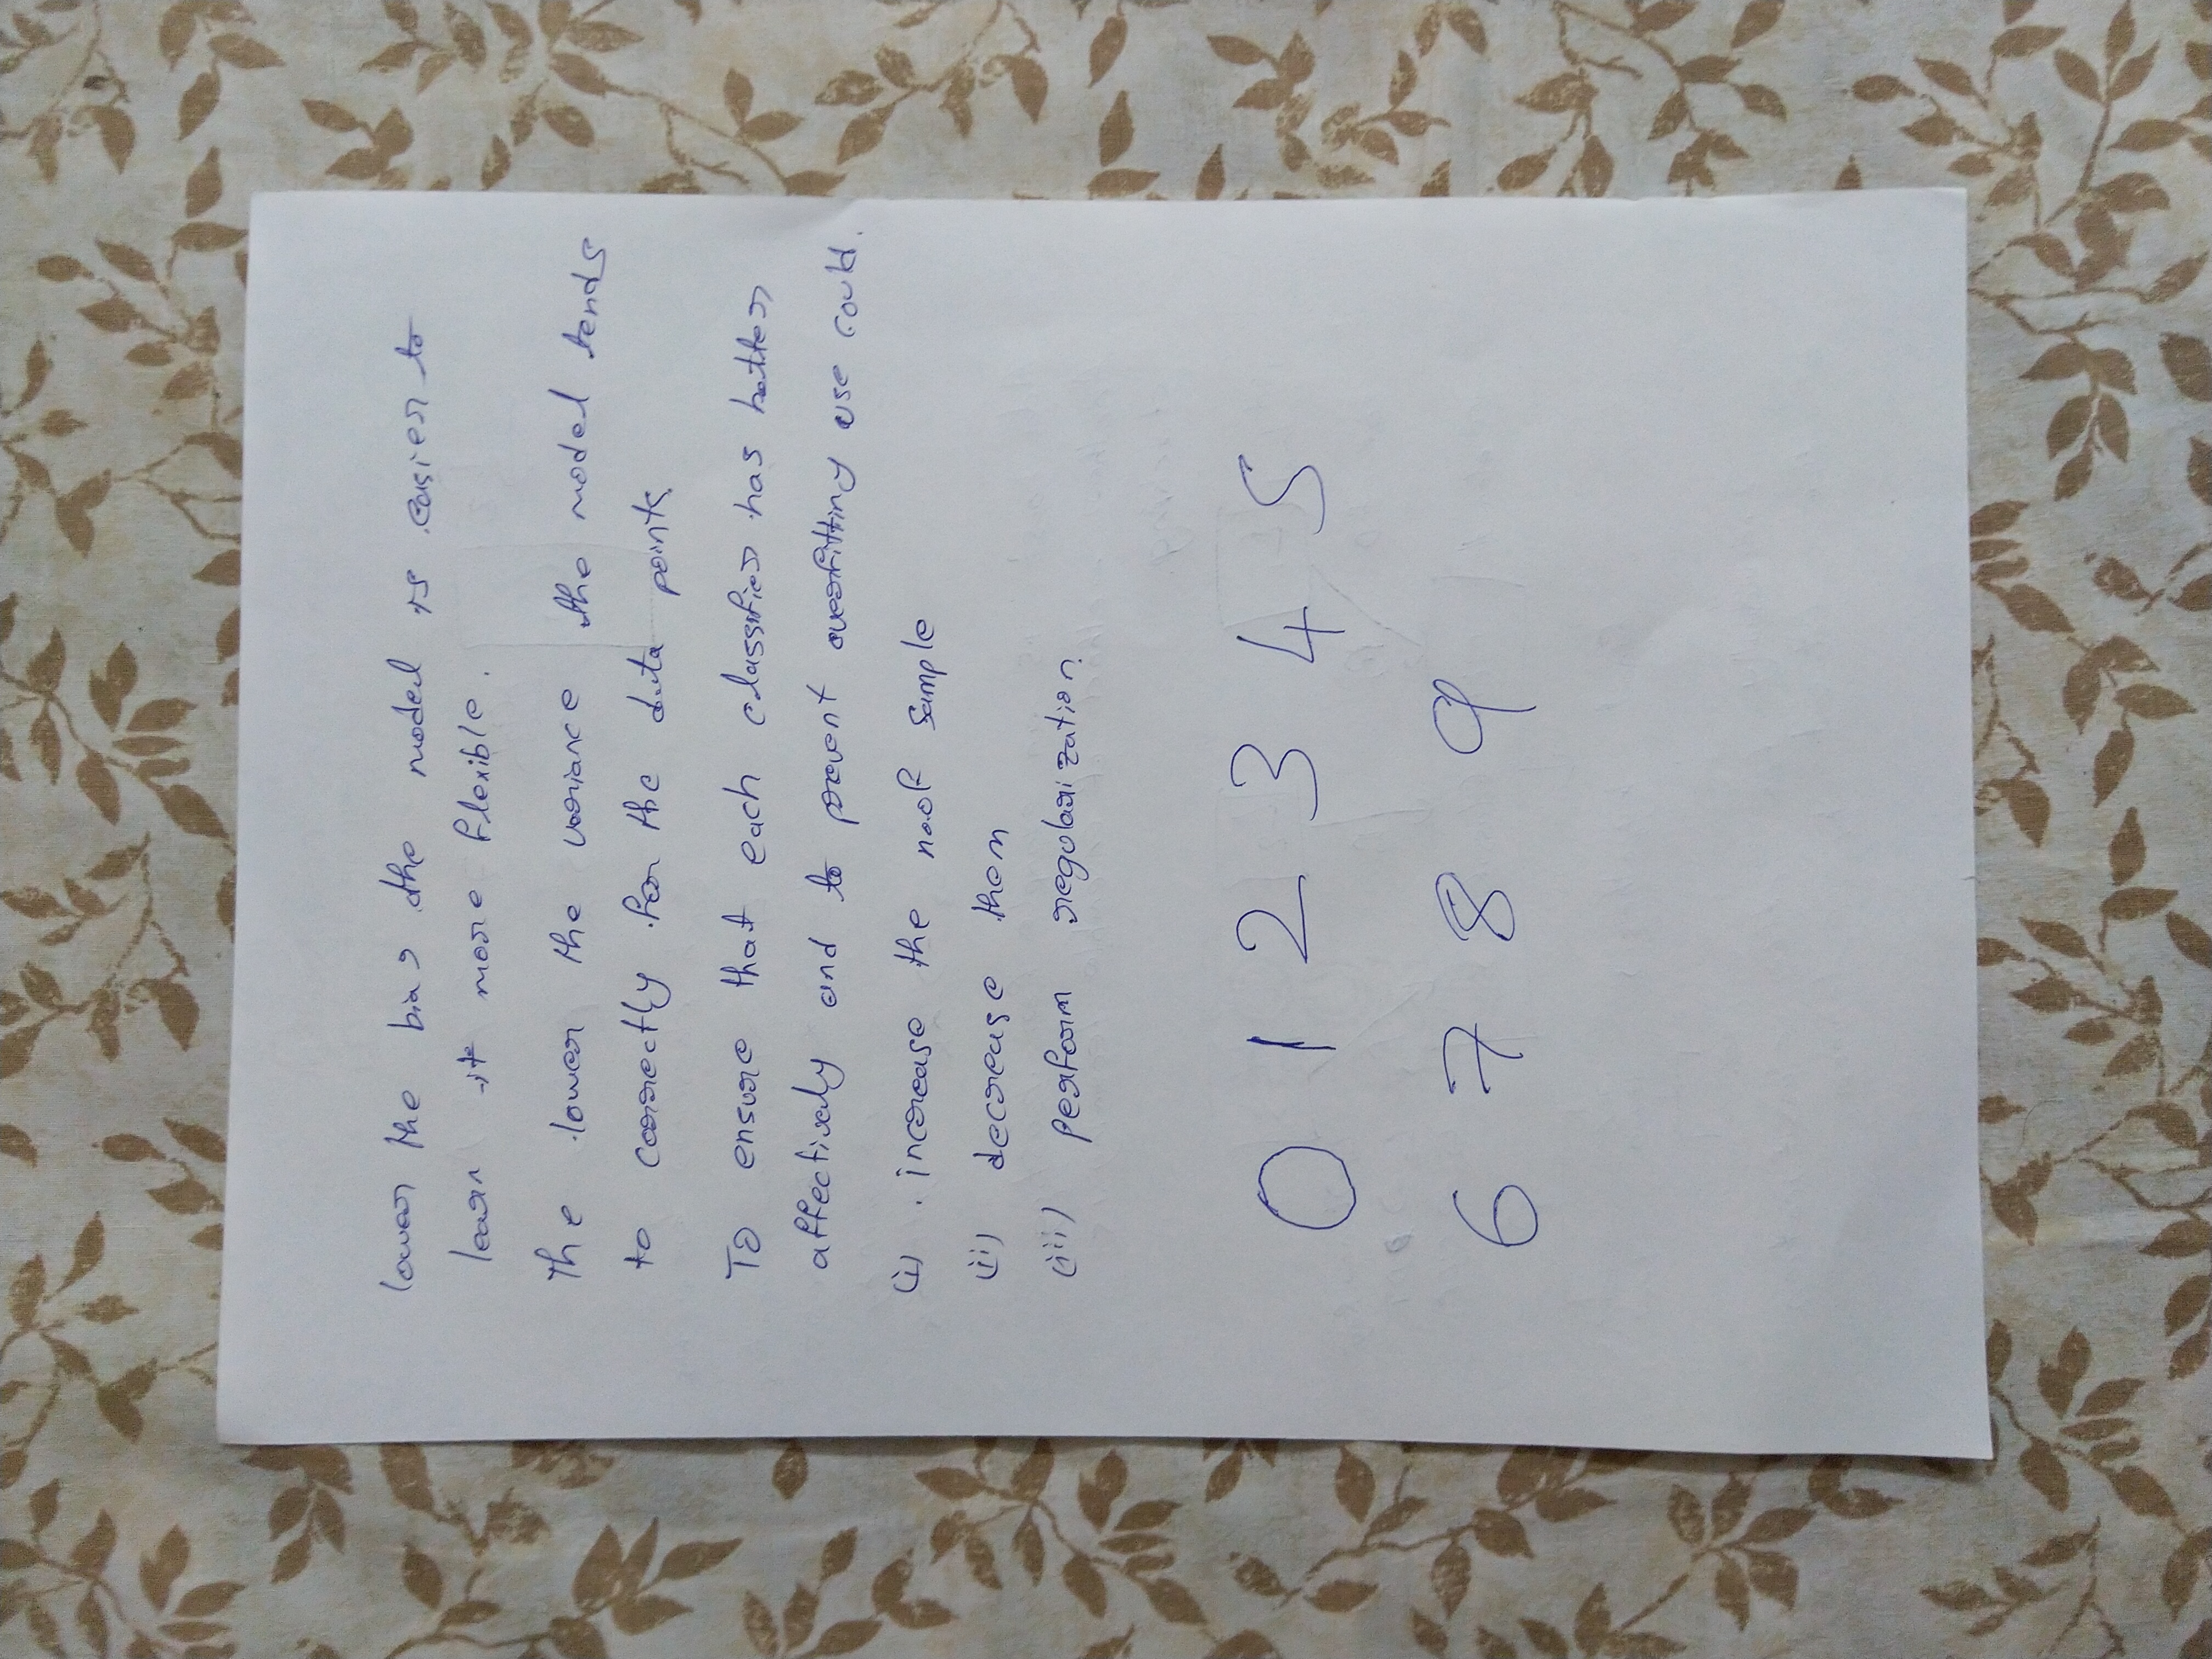 lower the bias the model is easier to
learn it more flexible.
The lower the variance the model tends
to correctly for the data points
To ensure that each classifier has better
affectively and to prevent overfitting use could.
(i) increase the no.of sample
(ii) decrease them
(iii) perform regularization.
0 1 2 3 4 5
6 7 8 9